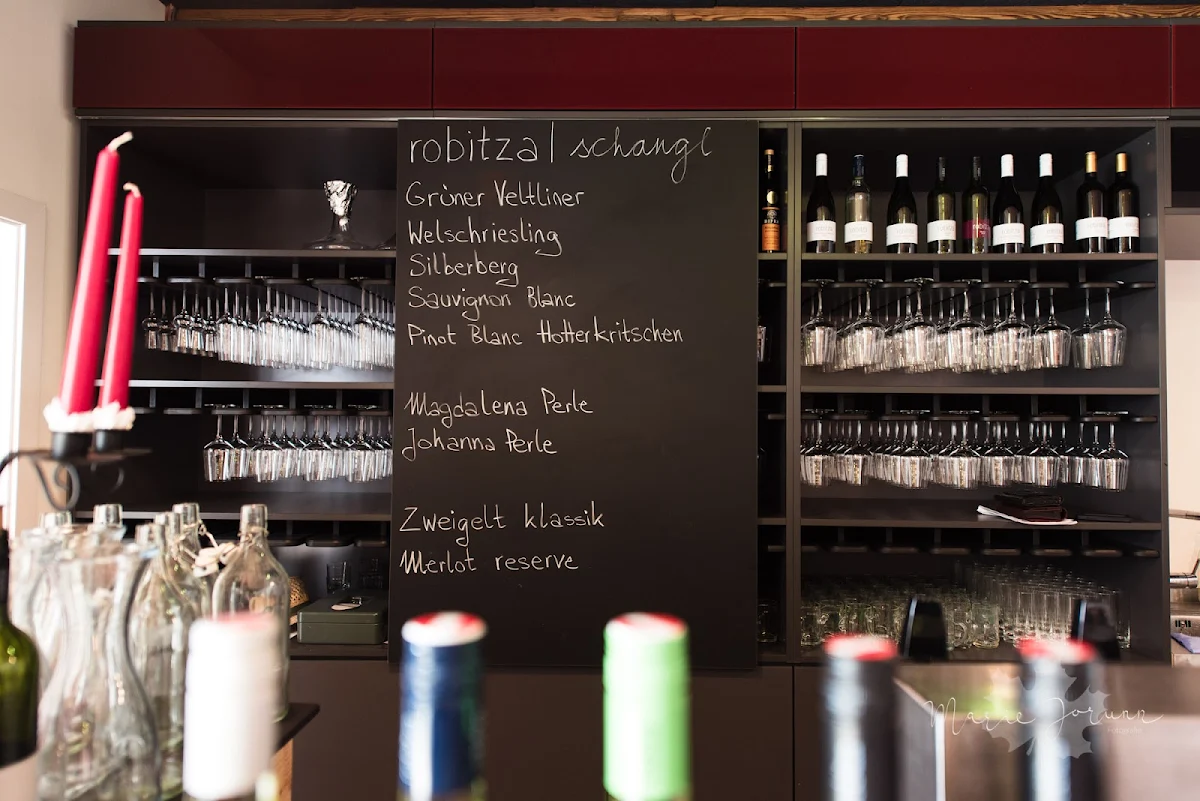 robitza | schangl
Grüner Veltliner
Welschriesling
Silberberg
Sauvignon Blanc
Pinot Blanc Hotterkritschen
Magdalena Perle
Johanna Perle
Zweigelt klassik
Merlot reserve
Marie Jorunn